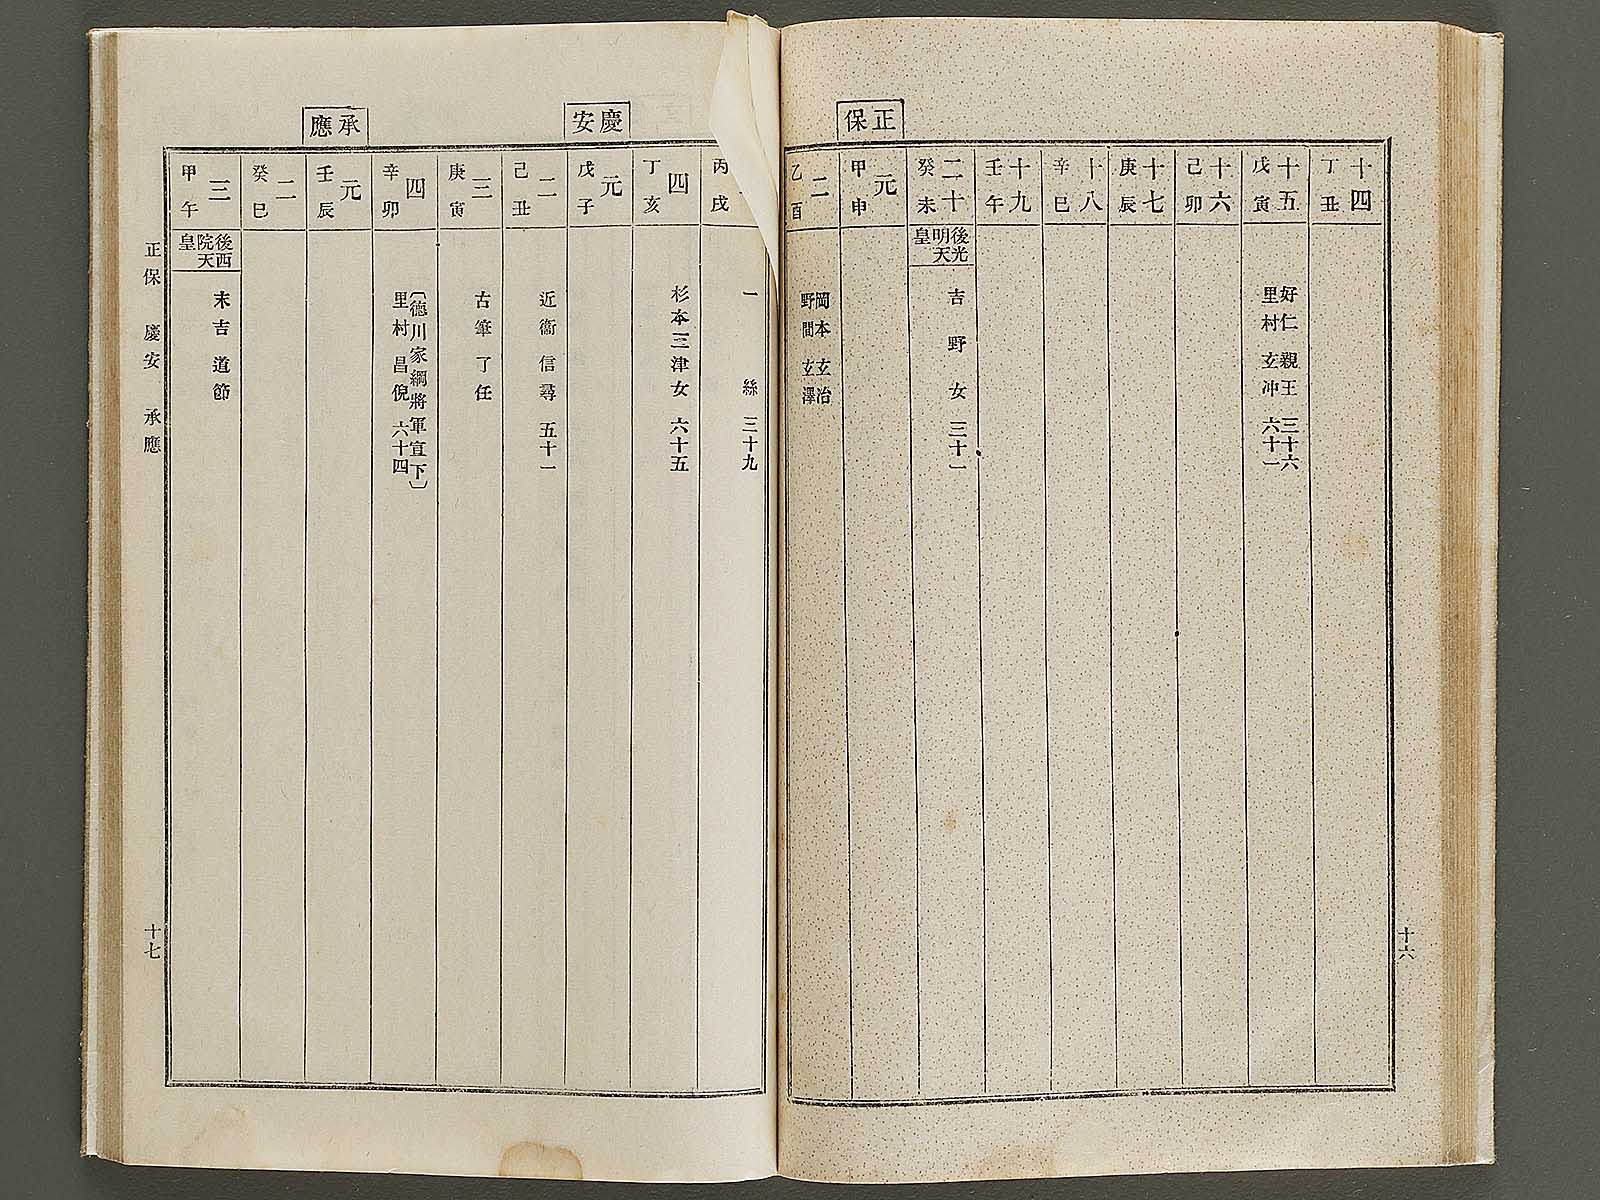 正保
十四 丁丑
十五 戊寅
好仁親王 三十六
里村玄冲 六十一
十六 己卯
十七 庚辰
十八 辛巳
十九 壬午
二十 癸未
後光明天皇
吉野女 三十一
元 甲申
二 乙酉
岡本玄冶
野間玄澤
十六
慶安
承應
丙戌
一絲 三十九
四 丁亥
杉本三津女 六十五
元 戊子
二 己丑
近衞信尋 五十一
三 庚寅
古筆了任
四 辛卯
〔德川家綱將軍宣下〕
里村昌倪 六十四
元 壬辰
二 癸巳
三 甲午
後西院天皇
末吉道節
正保 慶安 承應
十七